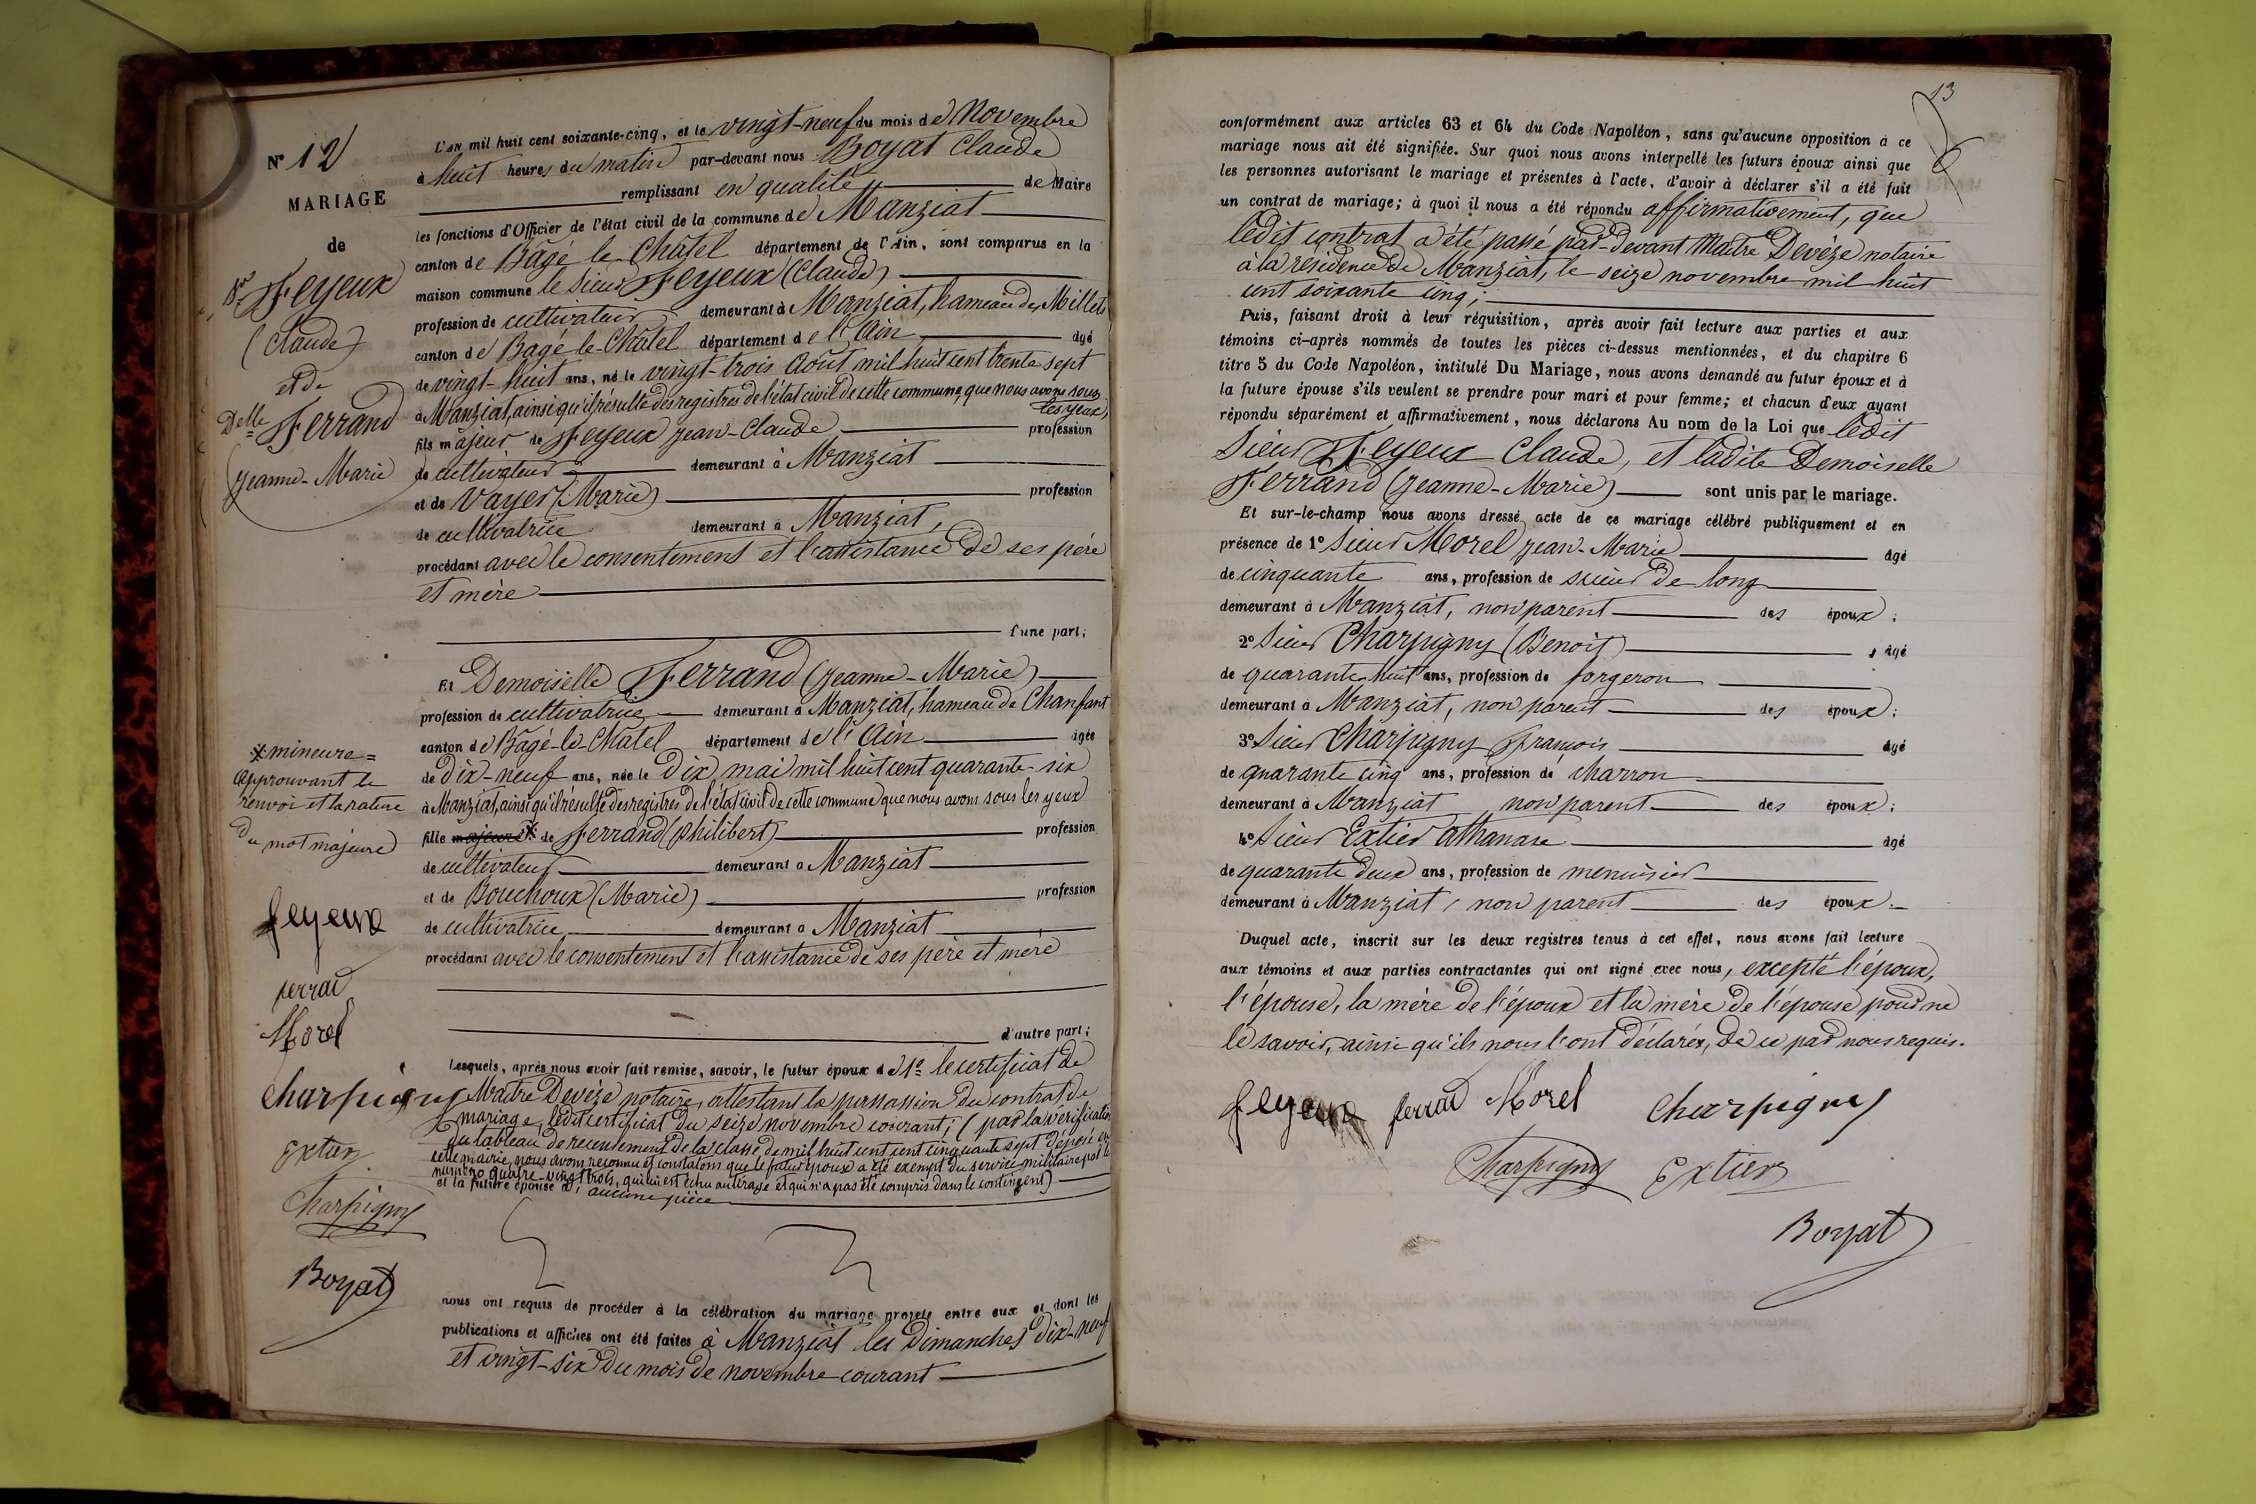 N° 12
MARIAGE
de
Sr Feyeux
(Claude)
et de
Delle Ferrand
(Jeanne-Marie)
L'an mil huit cent soixante-cinq, et le vingt-neuf du mois de Novembre
à huit heures du matin par-devant nous Boyat Claude
remplissant en qualité de Maire
les fonctions d'Officier de l'état civil de la commune de Manziat
canton de Bâgé-le-Châtel département de l'Ain, sont comparus en la
maison commune le sieur Feyeux (Claude)
profession de cultivateur demeurant à Manziat, hameau des Millets
canton de Bagé-le-Châtel département de l'Ain âgé
de vingt-huit ans, né le vingt-trois août mil huit cent trente sept
à Manziat, ainsi qu'il résulte des registres de l'état civil de cette commune que nous avons sous
les yeux
fils majeur de Feyeux Jean-Claude profession
de cultivateur demeurant à Manziat
et de Vayer (Marie) profession
de cultivatrice demeurant à Manziat,
procédant avec le consentement et l'assistance de ses père
et mère
d'une part;
Et Demoiselle Ferrand (Jeanne-Marie)
profession de cultivatrice demeurant à Manziat, hameau de Chanfant
canton de Bâgé-le-Châtel département de l'Ain âgée
de dix-neuf ans, née le dix mai mil huit cent quarante-six
à Manziat, ainsi qu'il résulte des registres de l'état civil de cette commune que nous avons sous les yeux
fille majeure x de Ferrand (Philibert) profession
de cultivateur demeurant à Manziat
et de Bouchoux (Marie) profession
de cultivatrice demeurant à Manziat
procédant avec le consentement et l'assistance de ses père et mère
d'autre part;
x mineure =
approuvant le
renvoi et la rature
du mot majeure
feyeux
ferrad
Morel
Charpigny
Extier
Charpigny
Boyat
Lesquels, après nous avoir fait remise, savoir, le futur époux de 1° le certificat de
Maître Devèze notaire, attestant la passassion du contrat de
mariage, ledit certificat du seize novembre courant; (par la vérification
du tableau de recensement de la classe de mil huit cent cinquante sept déposé en
cette mairie, nous avons reconnu et constatons que le futur époux a été exempt du service militaire par le
numéro quatre-vingt trois, qui lui est échu au tirage et qui n'a pas été compris dans le contingent)
et la future épouse d' aucune pièce
nous ont requis de procéder à la célébration du mariage projeté entre eux et dont les
publications et affiches ont été faites à Manziat les dimanches dix-neuf
et vingt-six du mois de novembre courant
13
conformément aux articles 63 et 64 du Code Napoléon, sans qu'aucune opposition à ce
mariage nous ait été signifiée. Sur quoi nous avons interpellé les futurs époux ainsi que
les personnes autorisant le mariage et présentes à l'acte, d'avoir à déclarer s'il a été fait
un contrat de mariage; à quoi il nous a été répondu affirmativement, que
ledit contrat a été passé par-devant Maître Devèze notaire
à la résidence de Manziat, le seize novembre mil huit
cent soixante cinq;
Puis, faisant droit à leur réquisition, après avoir fait lecture aux parties et aux
témoins ci-après nommés de toutes les pièces ci-dessus mentionnées, et du chapitre 6
titre 5 du Code Napoléon, intitulé Du Mariage, nous avons demandé au futur époux et à
la future épouse s'ils veulent se prendre pour mari et pour femme; et chacun d'eux ayant
répondu séparément et affirmativement, nous déclarons Au nom de la Loi que ledit
Sieur Feyeux Claude, et ladite Demoiselle
Ferrand (Jeanne-Marie) sont unis par le mariage.
Et sur-le-champ nous avons dressé acte de ce mariage célébré publiquement et en
présence de 1° Sieur Morel Jean-Marie âgé
de cinquante ans, profession de scieur de long
demeurant à Manziat, non parent des époux;
2° Sieur Charpigny (Benoit) âgé
de quarante-huit ans, profession de forgeron
demeurant à Manziat, non parent des époux;
3° Sieur Charpigny François âgé
de quarante cinq ans, profession de charron
demeurant à Manziat non parent des époux;
4° Sieur Extier Athanase âgé
de quarante deux ans, profession de menuisier
demeurant à Manziat, non parent des époux.
Duquel acte, inscrit sur les deux registres tenus à cet effet, nous avons fait lecture
aux témoins et aux parties contractantes qui ont signé avec nous, excepté l'époux,
l'épouse, la mère de l'époux et la mère de l'épouse pour ne
le savoir, ainsi qu'ils nous l'ont déclaré, de ce par nous requis.
feyeux ferrad Morel Charpigny
Charpigny Extier
Boyat